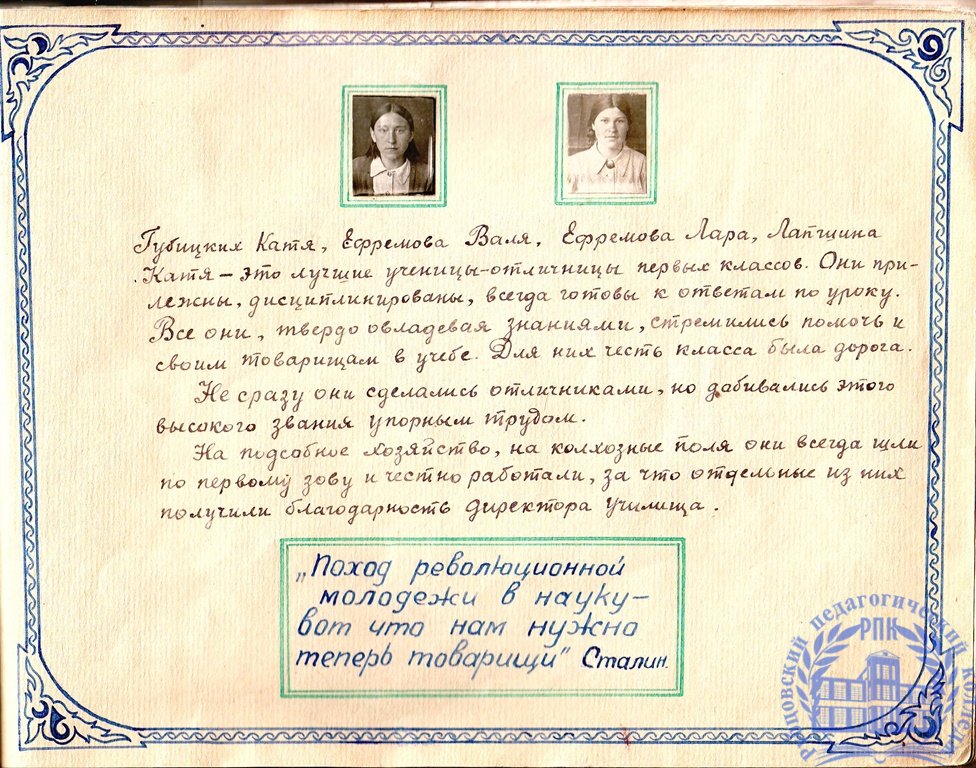 Губицких Катя, Ефремова Валя, Ефремова Лара, Лапшина
Катя – это лучшие ученицы-отличницы первых классов. Они при-
лежны, дисциплинированы, всегда готовы к ответам по уроку.
Все они, твердо овладевая знаниями, стремились помочь и
своим товарищам в учебе. Для них честь класса была дорога.
Не сразу они сделались отличниками, но добивались этого
высокого звания упорным трудом.
На подсобное хозяйство, на колхозные поля они всегда шли
по первому зову и честно работали, за что отдельные из них
получили благодарность директора училища.
„Поход революционной
молодежи в науку –
вот что нам нужно
теперь товарищи" Сталин.
педагогический колледж
РПК